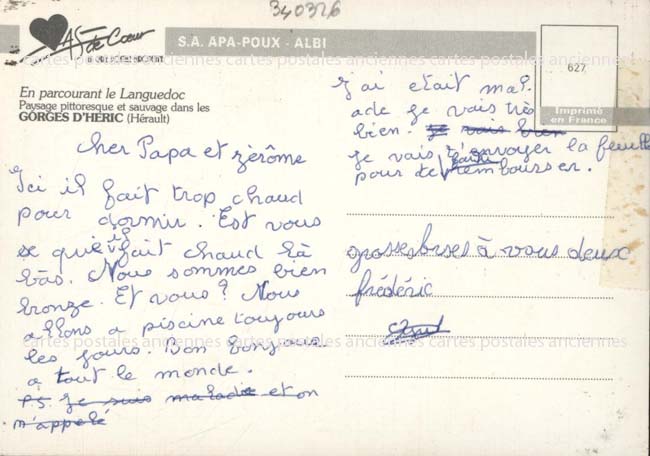 340326
AS de Cœur
S.A. APA-POUX - ALBI
627
Imprimé
en France
cartes postales anciennes cartes postales anciennes cartes postales anciennes
En parcourant le Languedoc
Paysage pittoresque et sauvage dans les
GORGES D'HÉRIC (Hérault)
cher Papa et zèrôme
Ici il fait trop chaud
pour dormir. Est vous
se que il fait chaud là
bàs. Nous sommes bien
bronze. Et vous? Nous
allons a piscine toujours
les jours. Bon bonjour
a tout le monde.
P.S. Je suis maladie et on
m'appelé
J'ai etait mal.
ade je vais très
bien. je vais bien
je vais t'envoyer la feuille
pour te rembourser.
grosses bises à vous deux
frédéric
cartes postales anciennes cartes postales anciennes cartes postales anciennes